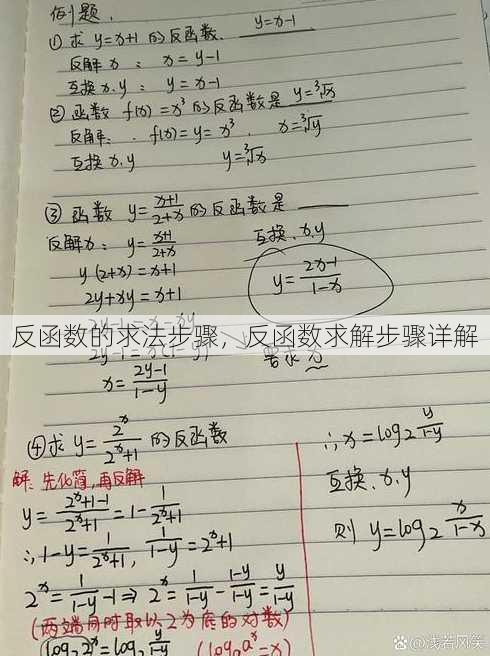 例题.
① 求 y=x+1 的反函数. y=x-1
反解 x : x=y-1
互换 x.y : y=x-1
② 函数 f(x)=x³ 的反函数是 y=∛x
反解: f(x)=y=x³. x=∛y
互换 x.y y=∛x
③ 函数 y=(x+1)/(2+x) 的反函数是 ——
反解x: y=(x+1)/(2+x) 互换.x.y
y(2+x)=x+1 y=(2x-1)/(1-x)
2y+xy=x+1
反函数的求法步骤，反函数求解步骤详解
x=(2y-1)/(1-y)
④求 y=2ˣ/(2ˣ+1) 的反函数
解: 先化简,再反解
y=(2ˣ+1-1)/(2ˣ+1)=1-1/(2ˣ+1)
∴1-y=1/(2ˣ+1), 1/(1-y)=2ˣ+1
2ˣ=1/(1-y)-1⇒2ˣ=1/(1-y)-(1-y)/(1-y)=y/(1-y)
(两端同时取以2为底的对数)
log₂2ˣ=log₂ y/(1-y) (logₐaˣ=x)
∴x=log₂ y/(1-y)
互换.x.y
则 y=log₂ x/(1-x)
@浅若网笑